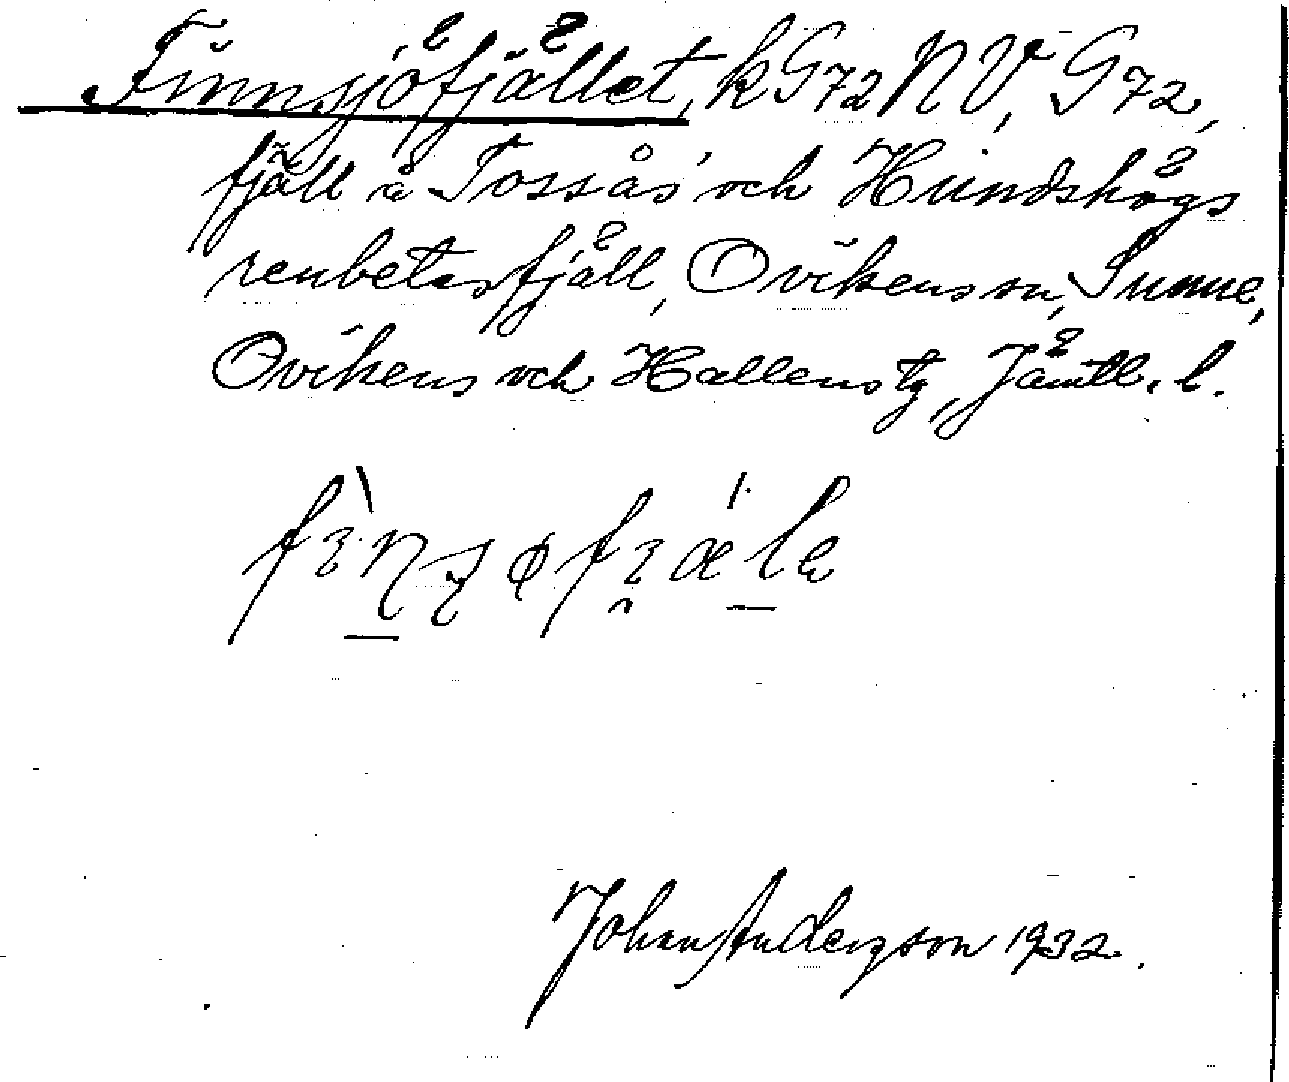 Finnsjöfjället, k G72 NV, G72,
fjäll å Tossås och Hundshögs
renbetesfjäll, Ovikens sn, Sunne,
Ovikens och Hallens tg, Jämtl. l.
Johan Anderson 1932.